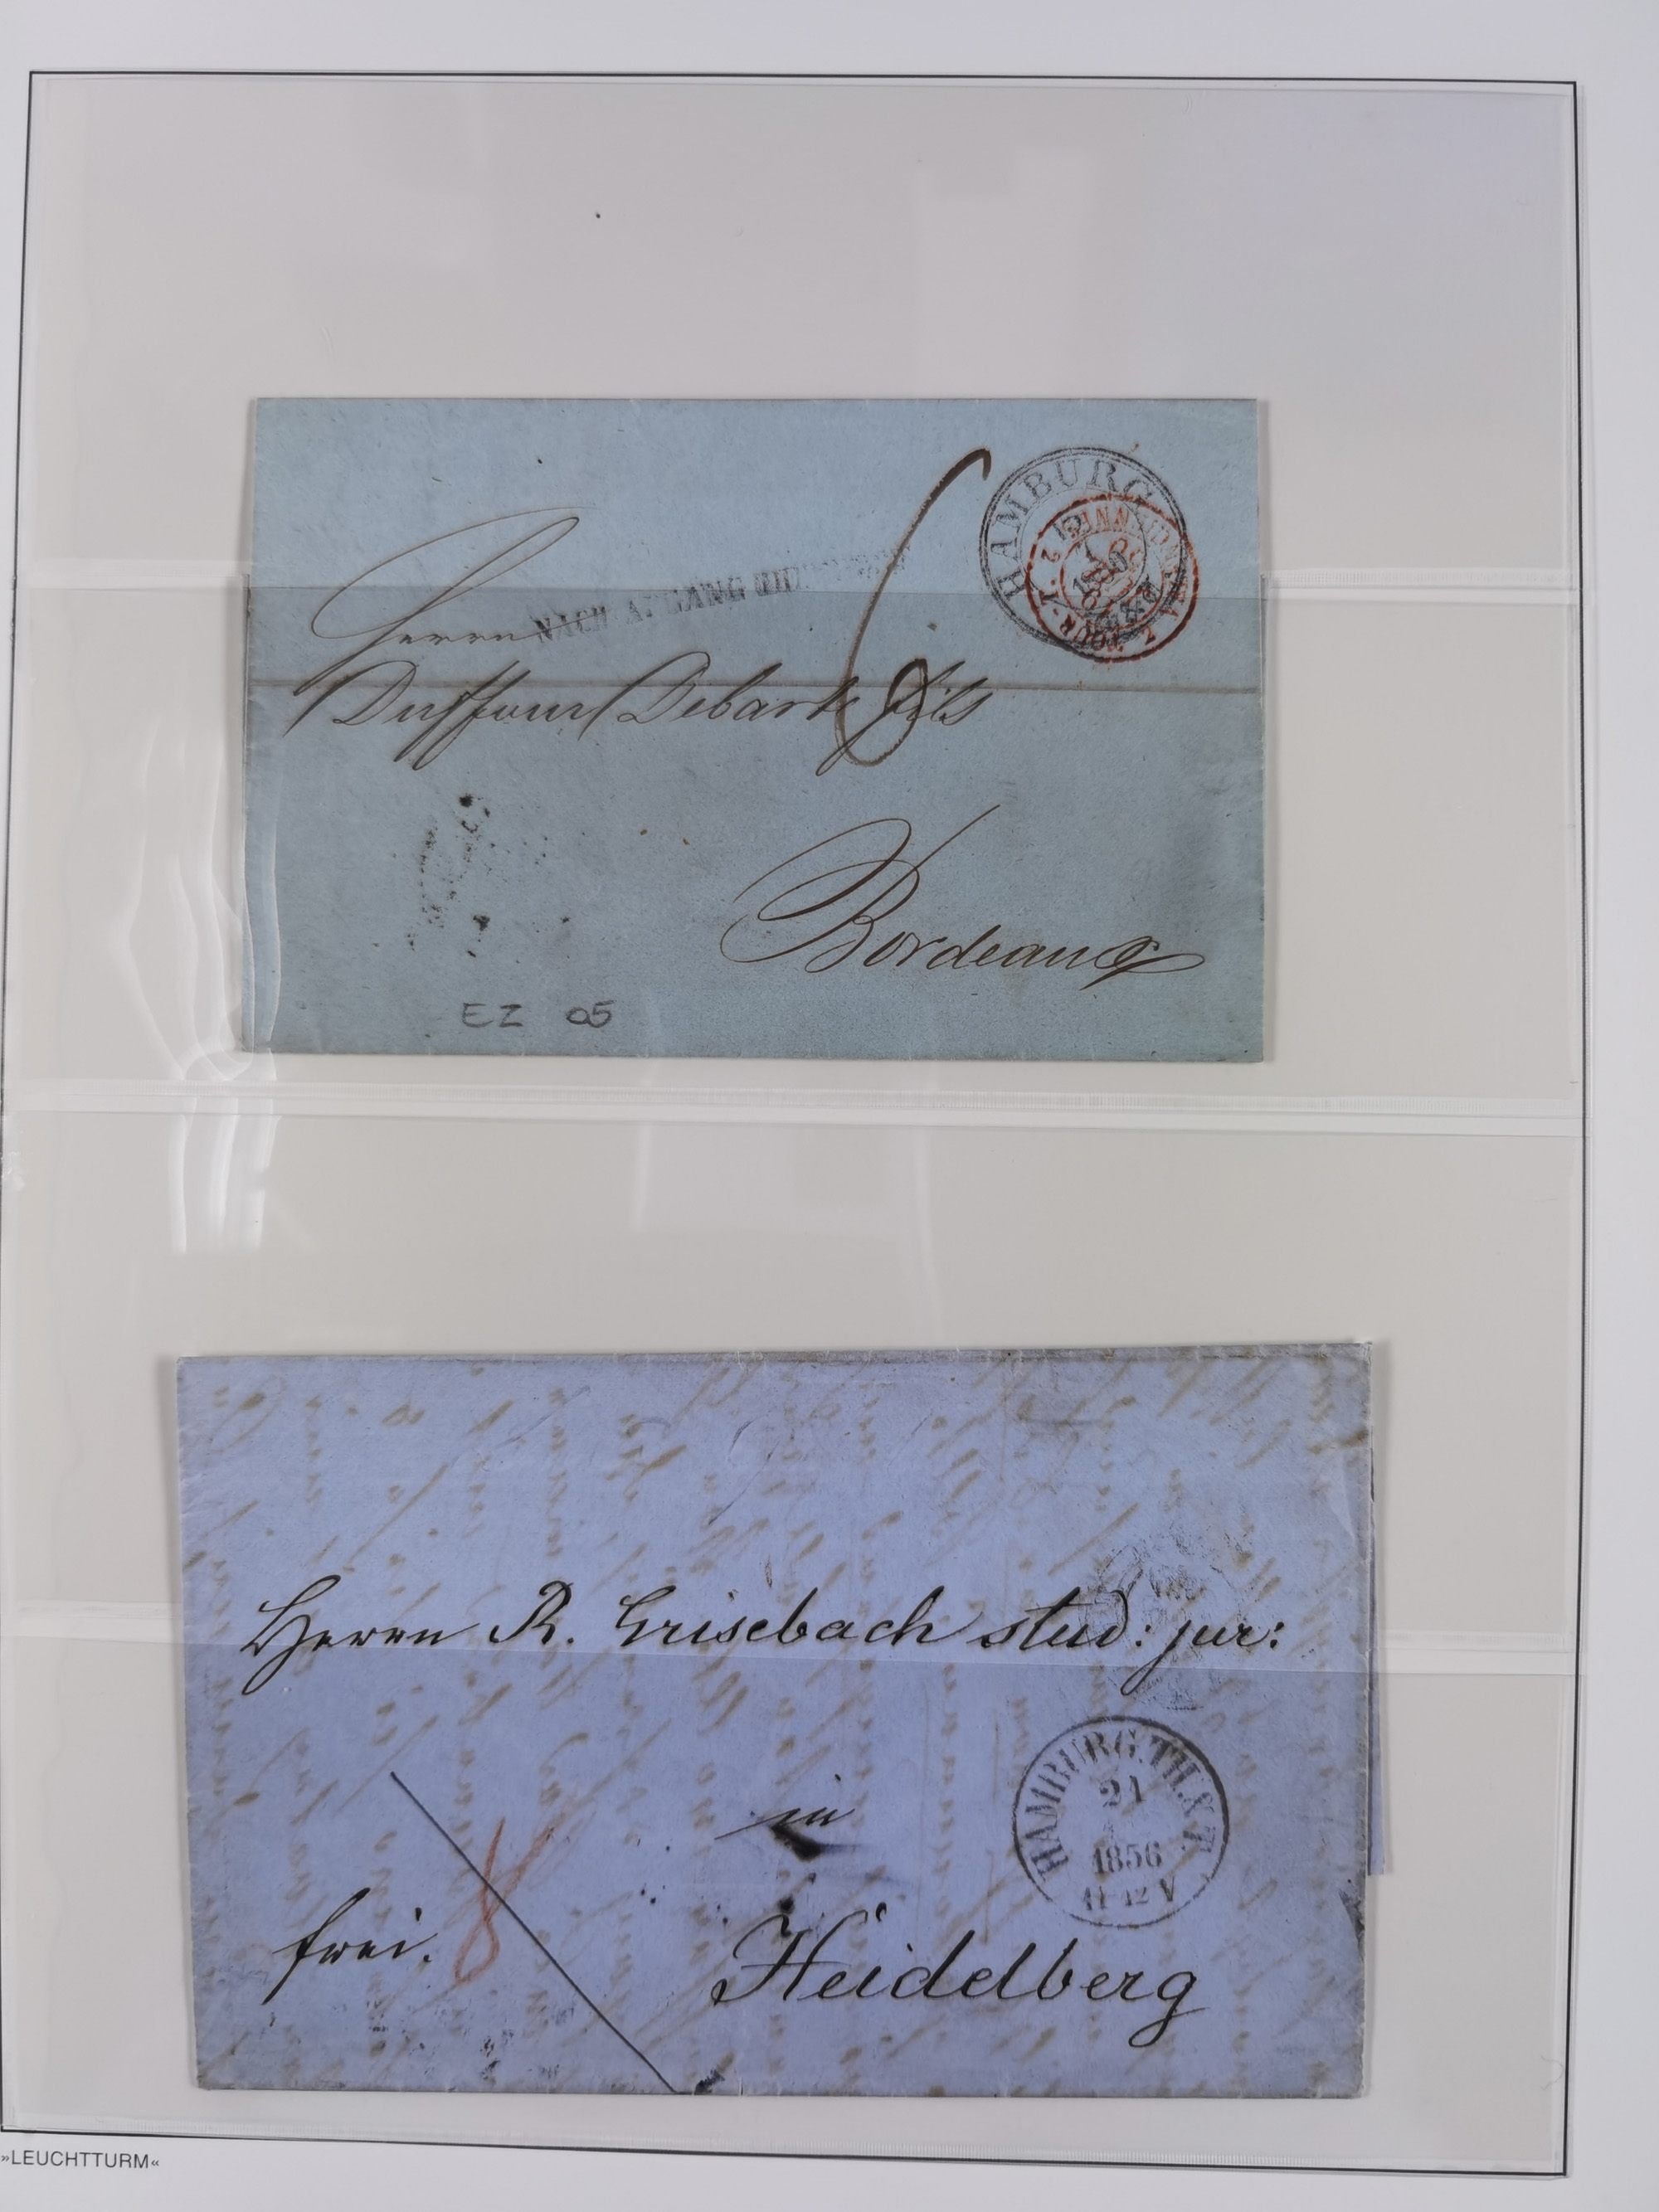 HAMBURG
NACH ABGANG DER POST
Herrn
Duffour Debarte fils
6
Bordeaux
EZ 05
Herrn R. Grisebach stud: jur:
HAMBURG.TH.&T.
21
1856
11-12 V
in
frei.
8
Heidelberg
»LEUCHTTURM«